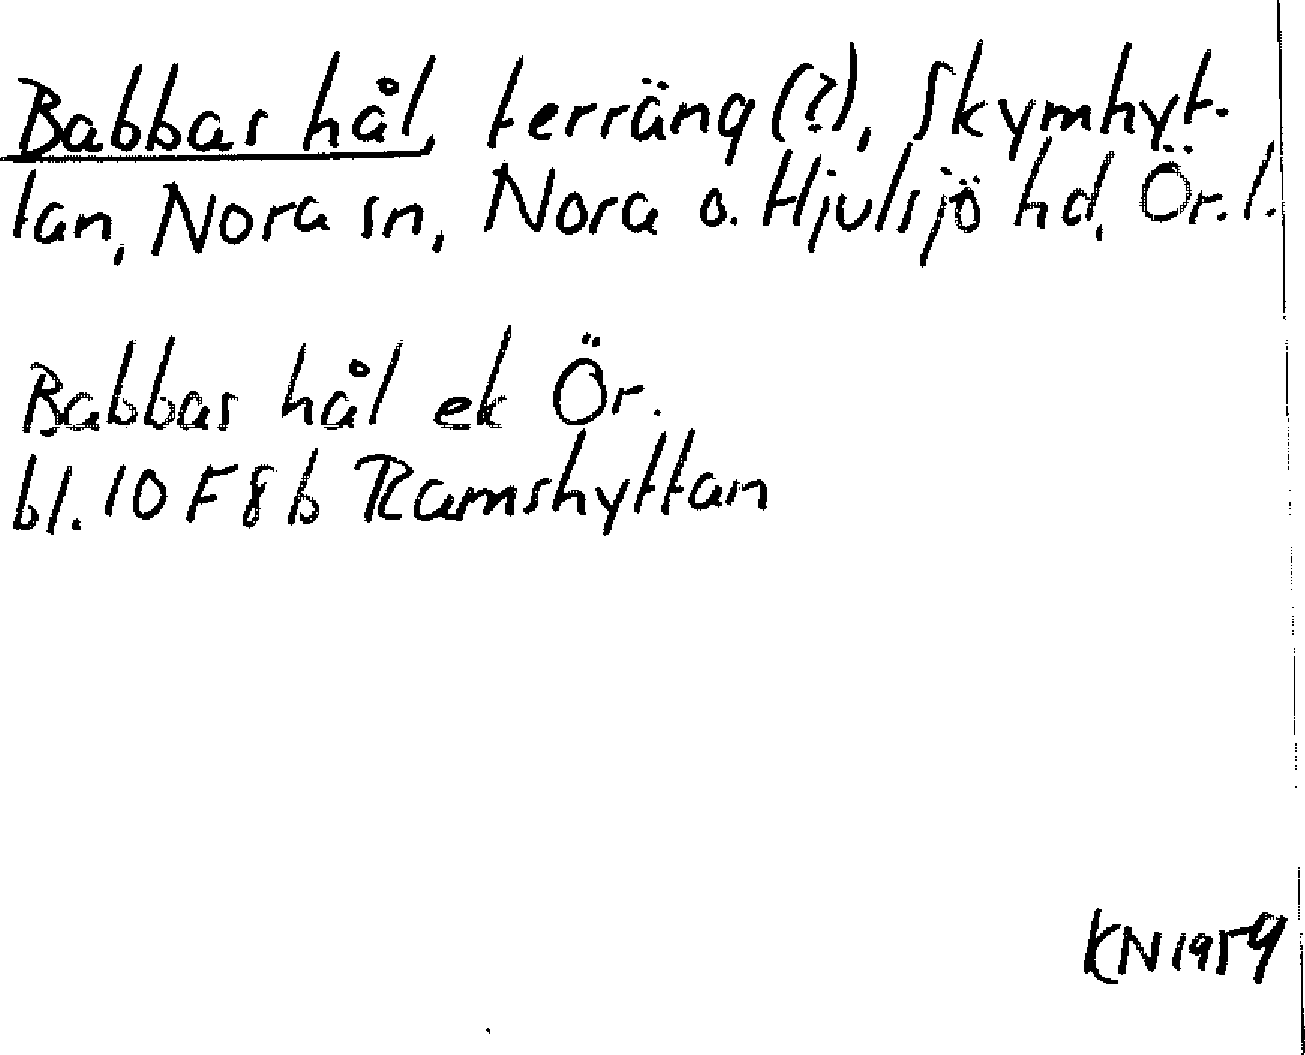 Babbas hål, terräng(?), Skymhyt-
tan, Nora sn, Nora o. Hjulsjö hd, Ör. l.
Babbas hål ek Ör.
bl. 10 F 8 b Ramshyttan
KN 1959